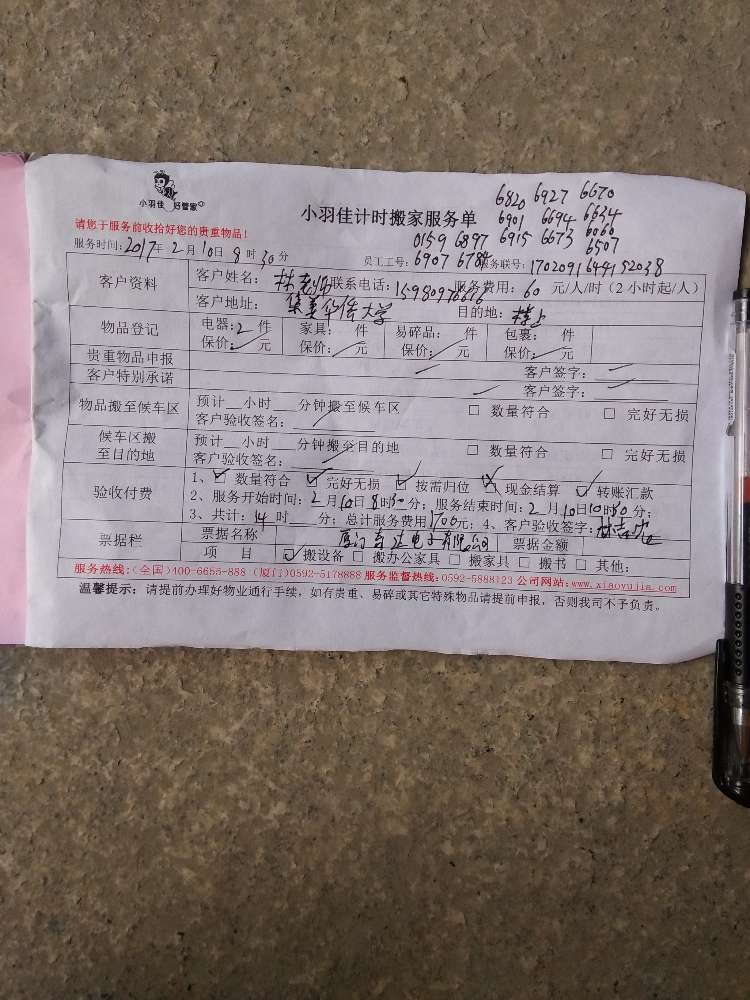 小羽佳 好管家
6820 6927 6670
小羽佳计时搬家服务单
6901 6694 6634
请您于服务前收拾好您的贵重物品！
0159 6897 6915 6673 6060
6507
服务时间:2017年2月10日8时30分 员工工号: 6907 6788 服务联号:
客户资料 客户姓名: 林老师 联系电话: 服务费用: 60 元/人/时（2小时起/人）
客户地址: 集美华侨大学 目的地: 楼上
物品登记 电器:2件 家具: 件 易碎品: 件 包裹: 件
保价: 元 保价: 元 保价: 元 保价: 元
贵重物品申报 客户签字:
客户特别承诺 客户签字:
物品搬至候车区 预计__小时__分钟搬至候车区 □ 数量符合 □ 完好无损
客户验收签名:
候车区搬至目的地 预计__小时__分钟搬至目的地 □ 数量符合 □ 完好无损
客户验收签名:
验收付费 1、☑ 数量符合 ☑ 完好无损 ☑ 按需归位 ☒ 现金结算 ☑ 转账汇款
2、服务开始时间: 2月10日8时30分; 服务结束时间: 2月10日10时30分;
3、共计: 14时__分; 总计服务费用1700元; 4、客户验收签字:
票据栏 票据名称 电子有限公司 票据金额
项 目 ☑ 搬设备 □ 搬办公家具 □ 搬家具 □ 搬书 □ 其他:
服务热线:(全国)400-6655-888 (厦门)0592-5178888 服务监督热线:0592-5888123 公司网站:www.xiaoyujia.com
温馨提示: 请提前办理好物业通行手续，如有贵重、易碎或其它特殊物品请提前申报，否则我司不予负责。